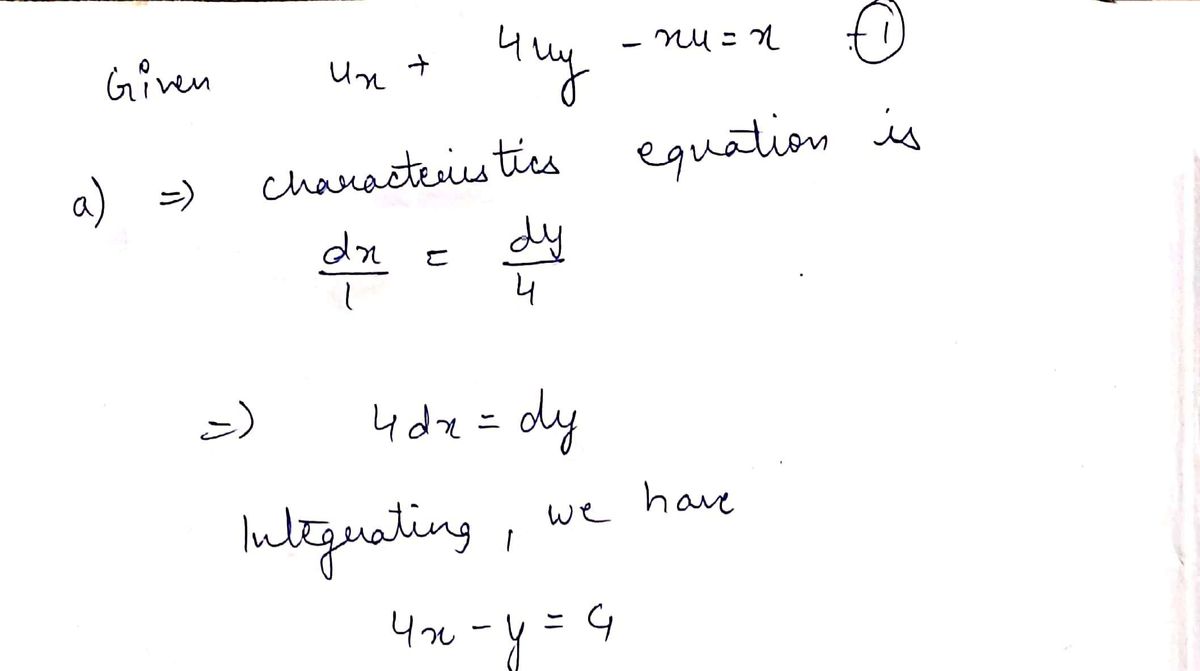 Given ux + 4uy - xu = x -①
a) => characteristics equation is
dx/1 = dy/4
=> 4dx = dy
Integrating, we have
4x - y = c₁